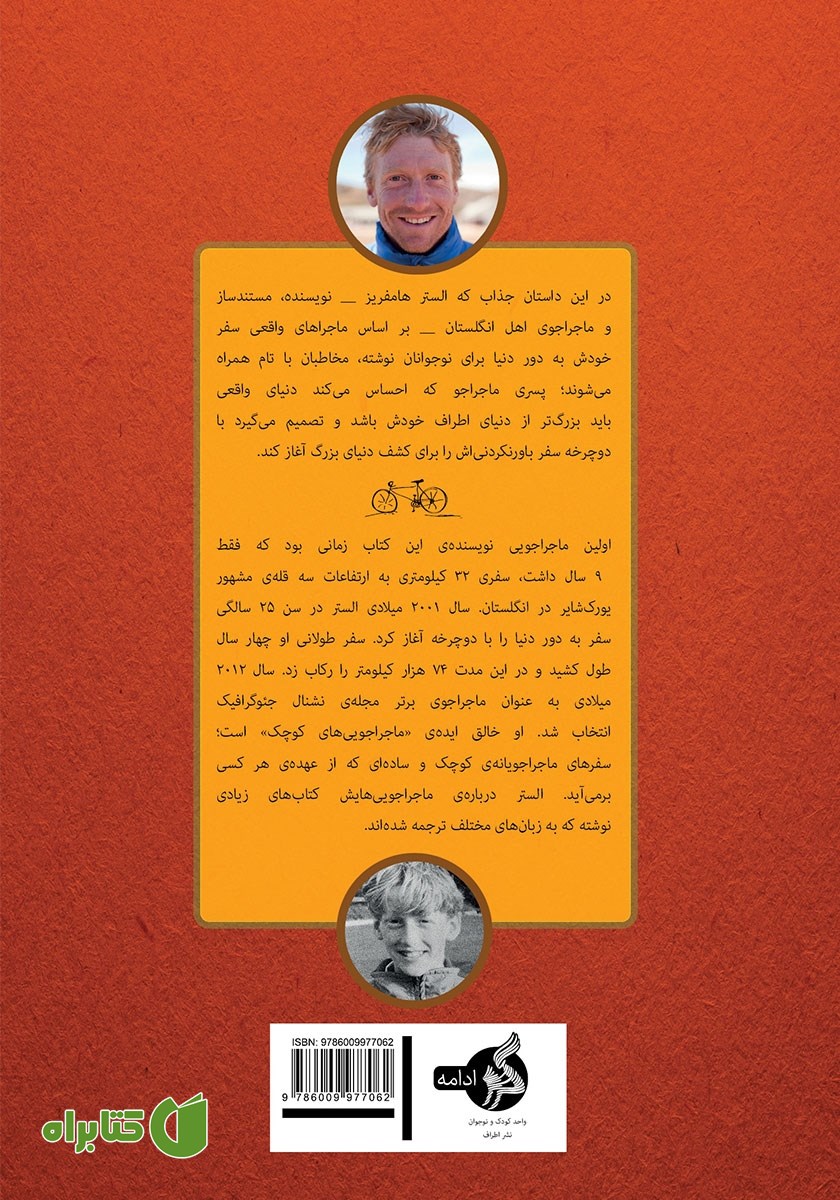 در این داستان جذاب که الستر هامفریز __ نویسنده، مستندساز
و ماجراجوی اهل انگلستان __ بر اساس ماجراهای واقعی سفر
خودش به دور دنیا برای نوجوانان نوشته، مخاطبان با تام همراه
می‌شوند؛ پسری ماجراجو که احساس می‌کند دنیای واقعی
باید بزرگ‌تر از دنیای اطراف خودش باشد و تصمیم می‌گیرد با
دوچرخه سفر باورنکردنی‌اش را برای کشف دنیای بزرگ آغاز کند.
اولین ماجراجویی نویسنده‌ی این کتاب زمانی بود که فقط
۹ سال داشت، سفری ۳۲ کیلومتری به ارتفاعات سه قله‌ی مشهور
یورک‌شایر در انگلستان. سال ۲۰۰۱ میلادی الستر در سن ۲۵ سالگی
سفر به دور دنیا را با دوچرخه آغاز کرد. سفر طولانی او چهار سال
طول کشید و در این مدت ۷۴ هزار کیلومتر را رکاب زد. سال ۲۰۱۲
میلادی به عنوان ماجراجوی برتر مجله‌ی نشنال جئوگرافیک
انتخاب شد. او خالق ایده‌ی «ماجراجویی‌های کوچک» است؛
سفرهای ماجراجویانه‌ی کوچک و ساده‌ای که از عهده‌ی هر کسی
برمی‌آید. الستر درباره‌ی ماجراجویی‌هایش کتاب‌های زیادی
نوشته که به زبان‌های مختلف ترجمه شده‌اند.
ISBN: 9786009977062
9 786009 977062
ادامه
واحد کودک و نوجوان
نشر اطراف
کتابراه